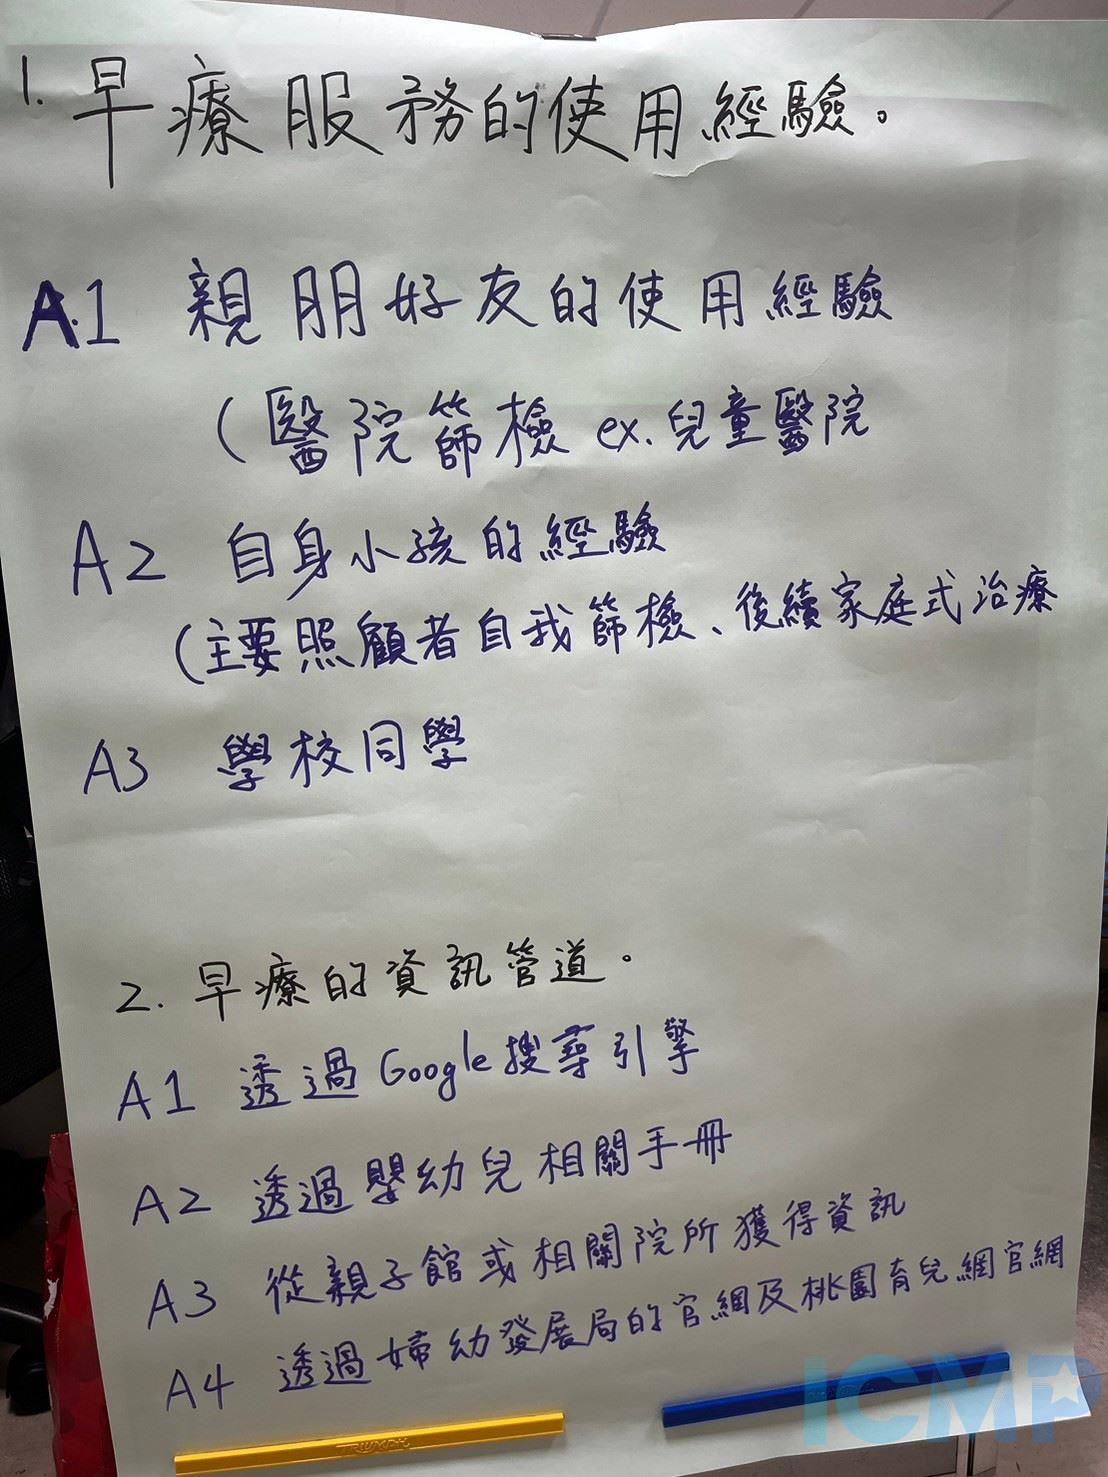 1. 早療服務的使用經驗。
A.1 親朋好友的使用經驗
(醫院篩檢 ex. 兒童醫院
A2 自身小孩的經驗
(主要照顧者自我篩檢、後續家庭式治療
A3 學校同學
2. 早療的資訊管道。
A1 透過Google搜尋引擎
A2 透過嬰幼兒相關手冊
A3 從親子館或相關院所獲得資訊
A4 透過婦幼發展局的官網及桃園育兒網官網
TRIUMPH
ICMP